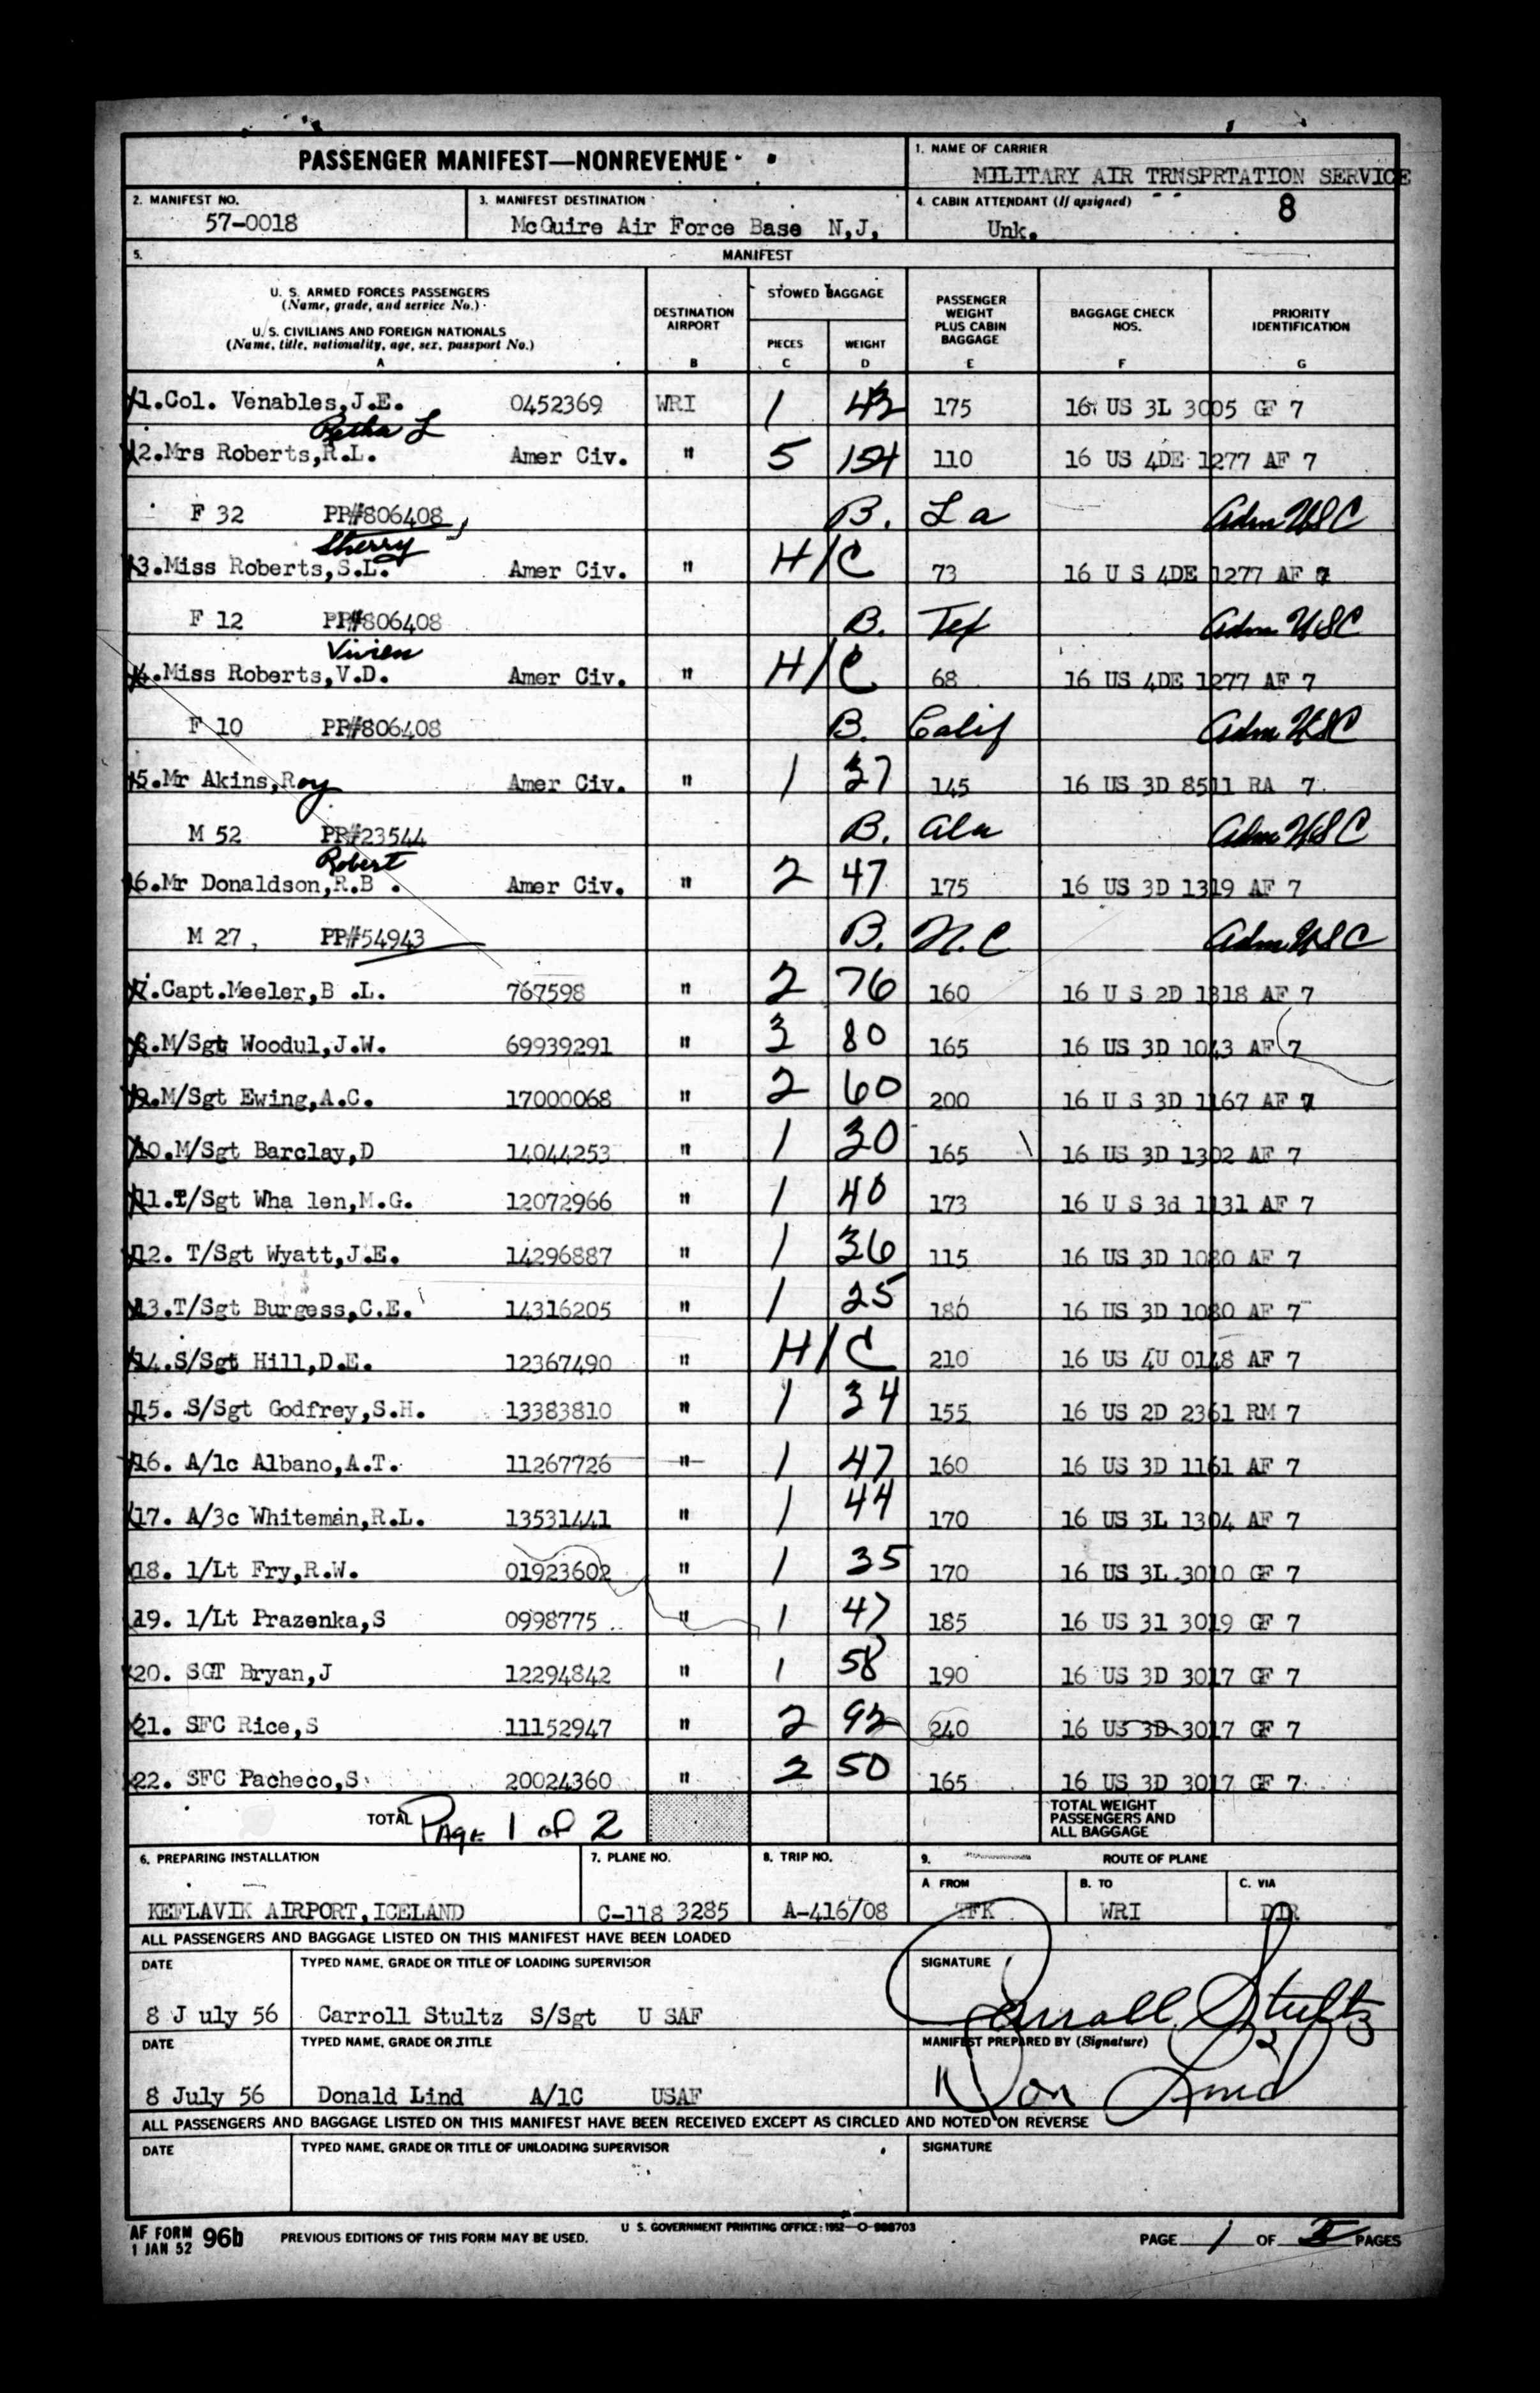 PASSENGER MANIFEST—NONREVENUE
1. NAME OF CARRIER
MILITARY AIR TRNSPRTATION SERVICE
2. MANIFEST NO.
57-0018
3. MANIFEST DESTINATION
McGuire Air Force Base N.J.
4. CABIN ATTENDANT (If assigned)
Unk.
8
5. MANIFEST
U. S. ARMED FORCES PASSENGERS
(Name, grade, and service No.)
U. S. CIVILIANS AND FOREIGN NATIONALS
(Name, title, nationality, age, sex, passport No.)
A
DESTINATION
AIRPORT
B
STOWED BAGGAGE
PIECES
C
WEIGHT
D
PASSENGER
WEIGHT
PLUS CABIN
BAGGAGE
E
BAGGAGE CHECK
NOS.
F
PRIORITY
IDENTIFICATION
G
1.Col. Venables,J.E. 0452369 WRI 1 43 175 16 US 3L 3005 GF 7
Retha L
2.Mrs Roberts,R.L. Amer Civ. " 5 154 110 16 US 4DE 1277 AF 7
F 32 PP#806408 B. La Adm USC
Sherry
3.Miss Roberts,S.L. Amer Civ. " H/C 73 16 U S 4DE 1277 AF 7
F 12 PP#806408 B. Tex Adm USC
Vivien
4.Miss Roberts,V.D. Amer Civ. " H/C 68 16 US 4DE 1277 AF 7
F 10 PP#806408 B. Calif Adm USC
5.Mr Akins,Roy Amer Civ. " 1 37 145 16 US 3D 8511 RA 7
M 52 PP#23544 B. Ala Adm USC
Robert
6.Mr Donaldson,R.B . Amer Civ. " 2 47 175 16 US 3D 1319 AF 7
M 27, PP#54943 B. N.C Adm USC
7.Capt.Meeler,B .L. 767598 " 2 76 160 16 U S 2D 1818 AF 7
8.M/Sgt Woodul,J.W. 69939291 " 3 80 165 16 US 3D 1043 AF 7
9.M/Sgt Ewing,A.C. 17000068 " 2 60 200 16 U S 3D 1167 AF 7
10.M/Sgt Barclay,D 14044253 " 1 30 165 16 US 3D 1302 AF 7
11.T/Sgt Wha len,M.G. 12072966 " 1 40 173 16 U S 3d 1131 AF 7
12. T/Sgt Wyatt,J.E. 14296887 " 1 36 115 16 US 3D 1080 AF 7
13.T/Sgt Burgess,C.E. 14316205 " 1 25 180 16 US 3D 1080 AF 7
14.S/Sgt Hill,D.E. 12367490 " H/C 210 16 US 4U 0148 AF 7
15. S/Sgt Godfrey,S.H. 13383810 " 1 34 155 16 US 2D 2361 RM 7
16. A/1c Albano,A.T. 11267726 " 1 47 160 16 US 3D 1161 AF 7
17. A/3c Whiteman,R.L. 13531441 " 1 44 170 16 US 3L 1304 AF 7
18. 1/Lt Fry,R.W. 01923602 " 1 35 170 16 US 3L 3010 GF 7
19. 1/Lt Prazenka,S 0998775 " 1 47 185 16 US 31 3019 GF 7
20. SGT Bryan,J 12294842 " 1 58 190 16 US 3D 3017 GF 7
21. SFC Rice,S 11152947 " 2 92 240 16 US 3D 3017 GF 7
22. SFC Pacheco,S 20024360 " 2 50 165 16 US 3D 3017 GF 7
TOTAL Page 1 of 2
TOTAL WEIGHT
PASSENGERS AND
ALL BAGGAGE
6. PREPARING INSTALLATION
KEFLAVIK AIRPORT,ICELAND
7. PLANE NO.
C-118 3285
8. TRIP NO.
A-416/08
9. ROUTE OF PLANE
A FROM
B. TO
WRI
C. VIA
DIR
ALL PASSENGERS AND BAGGAGE LISTED ON THIS MANIFEST HAVE BEEN LOADED
DATE
8 J uly 56
TYPED NAME, GRADE OR TITLE OF LOADING SUPERVISOR
Carroll Stultz S/Sgt U SAF
SIGNATURE
Carroll Stultz
DATE
8 July 56
TYPED NAME, GRADE OR TITLE
Donald Lind A/1C USAF
MANIFEST PREPARED BY (Signature)
Don Lind
ALL PASSENGERS AND BAGGAGE LISTED ON THIS MANIFEST HAVE BEEN RECEIVED EXCEPT AS CIRCLED AND NOTED ON REVERSE
DATE
TYPED NAME, GRADE OR TITLE OF UNLOADING SUPERVISOR
SIGNATURE
AF FORM 96b
1 JAN 52
PREVIOUS EDITIONS OF THIS FORM MAY BE USED.
U S. GOVERNMENT PRINTING OFFICE: 1952—O-988703
PAGE 1 OF PAGES